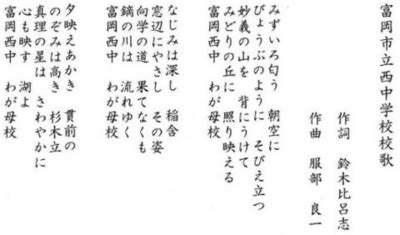 富岡市立西中学校校歌
作詞 鈴木比呂志
作曲 服部良一
みずいろ匂う 朝空に
びょうぶのように そびえ立つ
妙義の山を 背にうけて
みどりの丘に 照り映える
富岡西中 わが母校
なじみは深し 稲含
窓辺にやさし その姿
向学の道 果てなくも
鏑の川は 流れゆく
富岡西中 わが母校
夕映えあかき 貫前の
のぞみは高き 杉木立
真理の星は さわやかに
心も映す 湖よ
富岡西中 わが母校